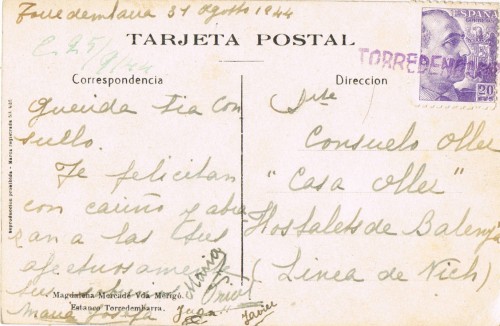 Torredembarra 31 agosto 1944
C. 25/9/44
TARJETA POSTAL
ESPAÑA
20
TORREDEMB
Correspondencia
Direccion
Querida tia Con
suello.
Te felicitan
con cariño y abra
zan a las tres
afectuosamente
sus
Maria
Maria Josefa Juan
Javier
Consuelo Oller
"Casa Oller"
Hostalets de Balenyá
(Linea de Vich)
Magdalena Mercadé Vda Merigó.
Estanco Torredembarra.
Reproduccion prohibida - Marca registrada